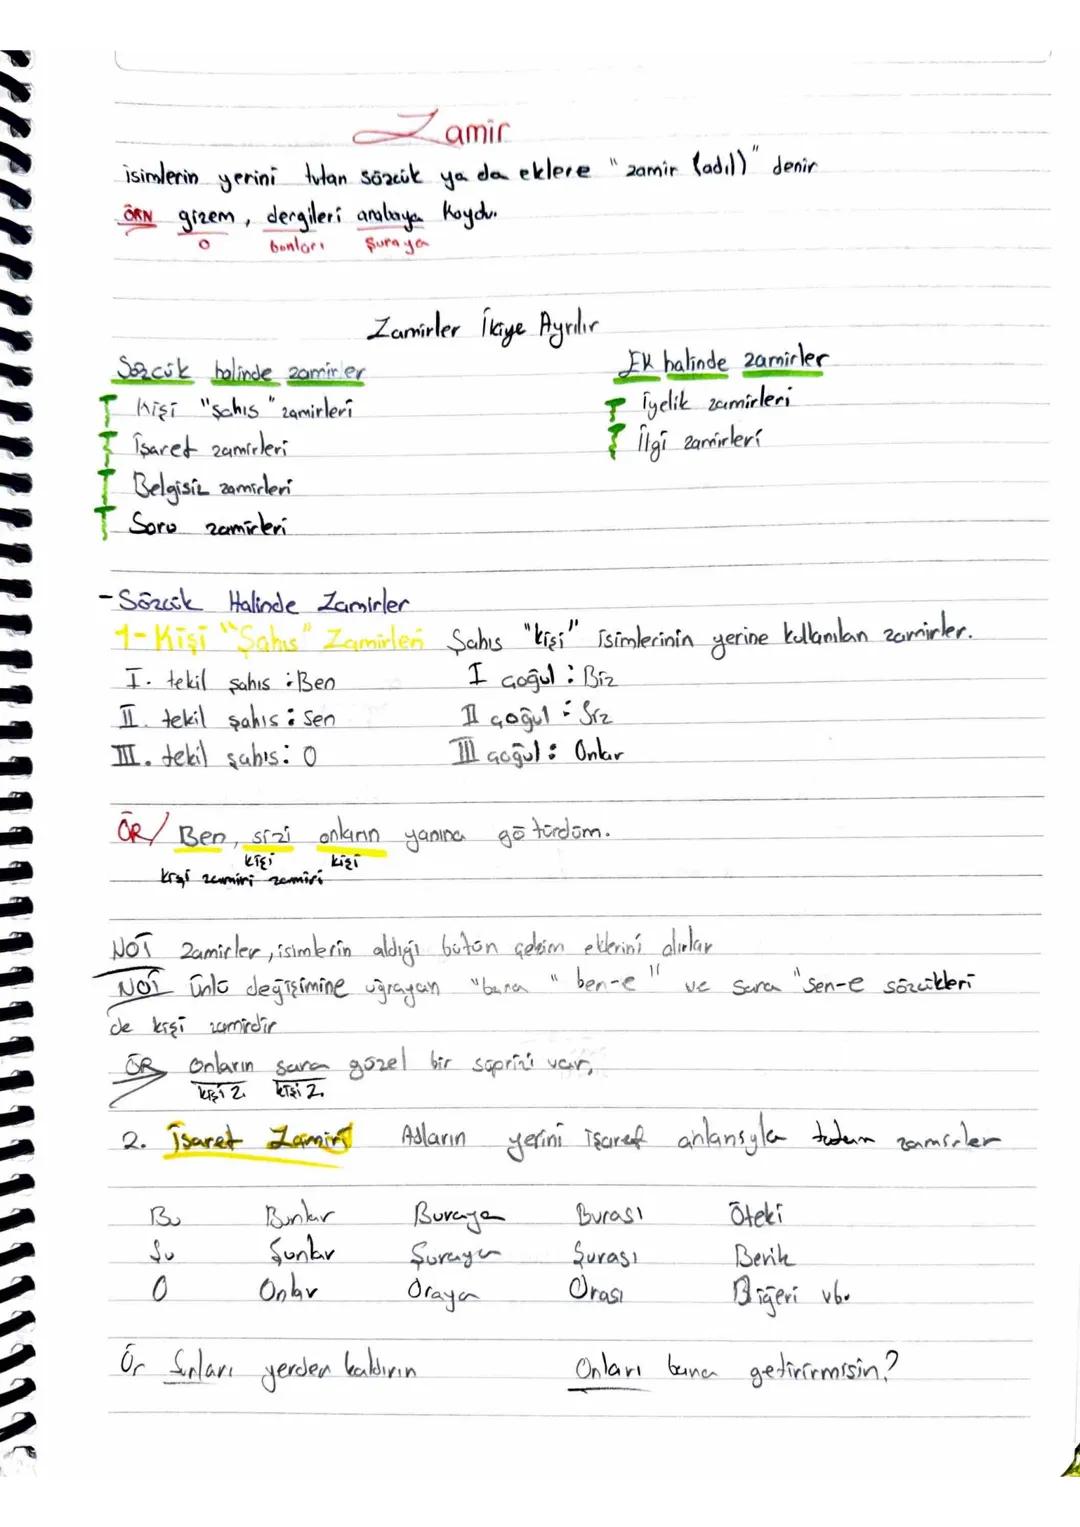 Zamir
isimlerin yerini tutan sözcük ya da eklere "zamir (adıl)" denir
ÖRN gizem, dergileri arabaya koydu.
O bunları şuraya
Zamirler İkiye Ayrılır
Sözcük halinde zamirler
Ek halinde zamirler
Kişi "şahıs" zamirleri
İyelik zamirleri
İşaret zamirleri
İlgi zamirleri
Belgisiz zamirleri
Soru zamirleri
-Sözcük Halinde Zamirler
1-Kişi "Şahıs" Zamirleri Şahıs "kişi" isimlerinin yerine kullanılan zamirler.
I. tekil şahıs : Ben
I çoğul : Biz
II. tekil şahıs : Sen
II çoğul : Siz
III. tekil şahıs : O
III çoğul : Onlar
ÖR/ Ben, sizi onların yanına götürdüm.
kişi kişi
kişi zamiri zamiri
NOT zamirler, isimlerin aldığı bütün çekim eklerini alırlar
NOT ünlü değişimine uğrayan "bana" ben-e" ve sana "sen-e sözcükleri
de kişi zamirdir
ÖR onların sana güzel bir süprizi var,
kişi z. kişi z.
2. İşaret Zamiri Adların yerini işaret anlamsıyla tutan zamirler
Bu Bunlar Buraya Burası Öteki
Şu Şunlar Şuraya Şurası Beriki
O Onlar Oraya Orası Diğeri vb.
Ör Şunları yerden kaldırın
Onları bana getirirmisin?